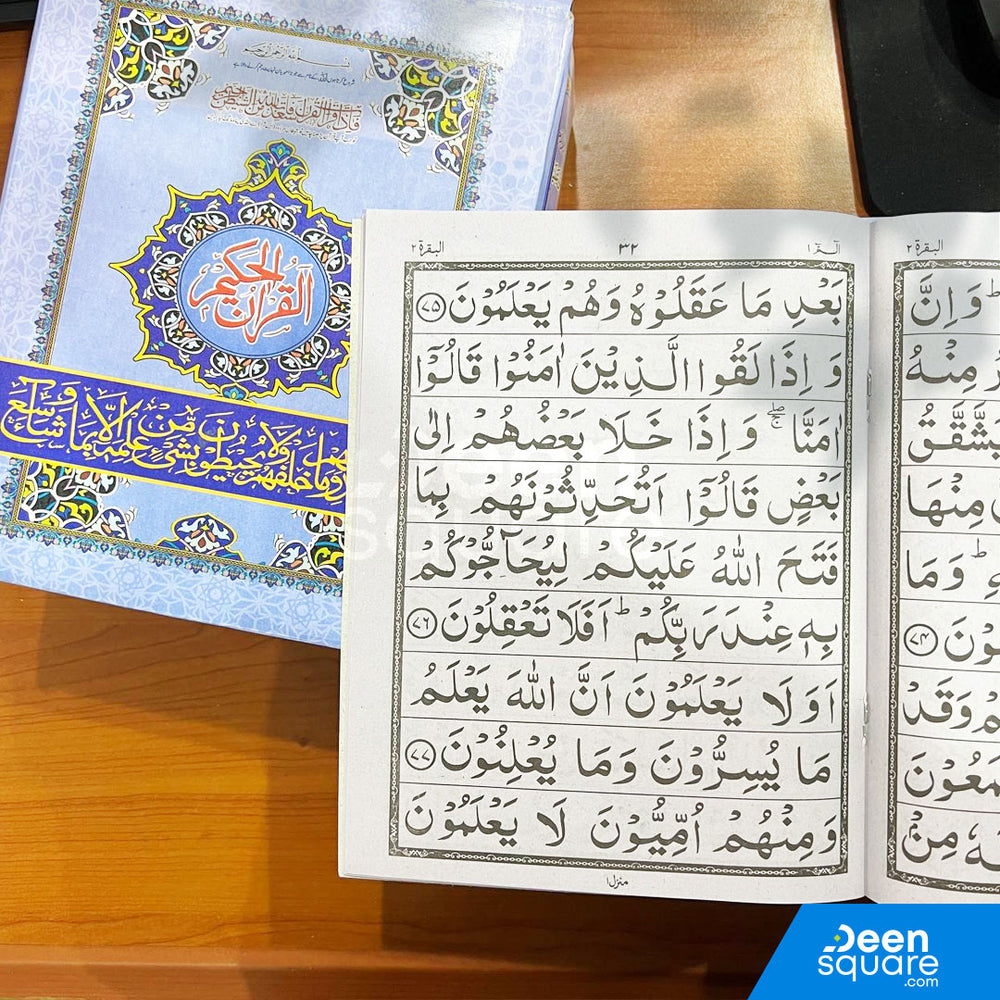 القرآن الحكيم
البقرة ٢
٣٢
الٓمّٓ ١
بَعْدِ مَا عَقَلُوْهُ وَهُمْ يَعْلَمُوْنَ ﴿٧٥﴾
وَ اِذَا لَقُوا الَّذِيْنَ اٰمَنُوْا قَالُوْٓا
اٰمَنَّا ۖۚ وَ اِذَا خَلَا بَعْضُهُمْ اِلٰى
بَعْضٍ قَالُوْٓا اَتُحَدِّثُوْنَهُمْ بِمَا
فَتَحَ اللّٰهُ عَلَيْكُمْ لِيُحَآجُّوْكُمْ
بِهٖ عِنْدَ رَبِّكُمْ ؕ اَفَلَا تَعْقِلُوْنَ ﴿٧٦﴾
اَوَ لَا يَعْلَمُوْنَ اَنَّ اللّٰهَ يَعْلَمُ
مَا يُسِرُّوْنَ وَمَا يُعْلِنُوْنَ ﴿٧٧﴾
وَمِنْهُمْ اُمِّيُّوْنَ لَا يَعْلَمُوْنَ
منزل ١
البقرة ٢
وَ اِنَّ
مِنْهُ
مِنْهَا
وَ مَا
﴿٧٤﴾
وَقَدْ
مِنْۢ
Deen
square
.com